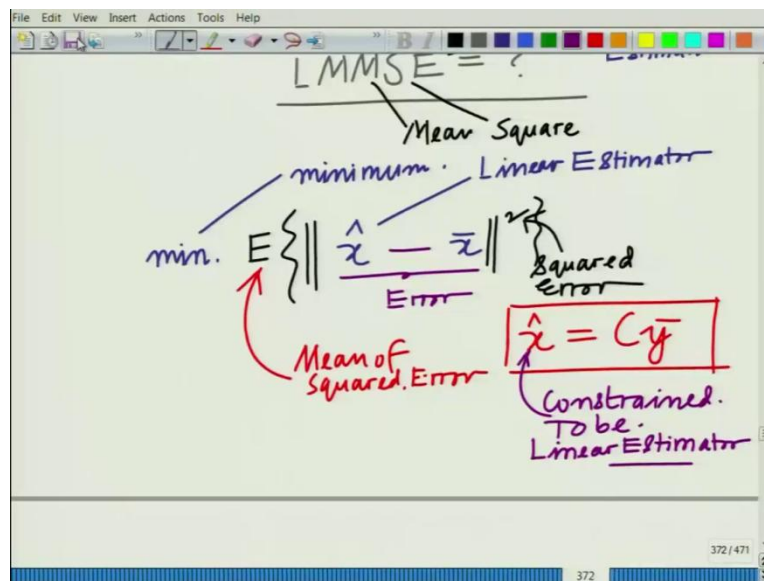 File Edit View Insert Actions Tools Help
B I
LMMSE = ?
Mean Square
minimum. Linear Estimator
min. E{‖x̂ — x̄‖²}
Error
Squared Error
Mean of Squared Error
x̂ = Cȳ
Constrained.
To be.
Linear Estimator
372/471
372